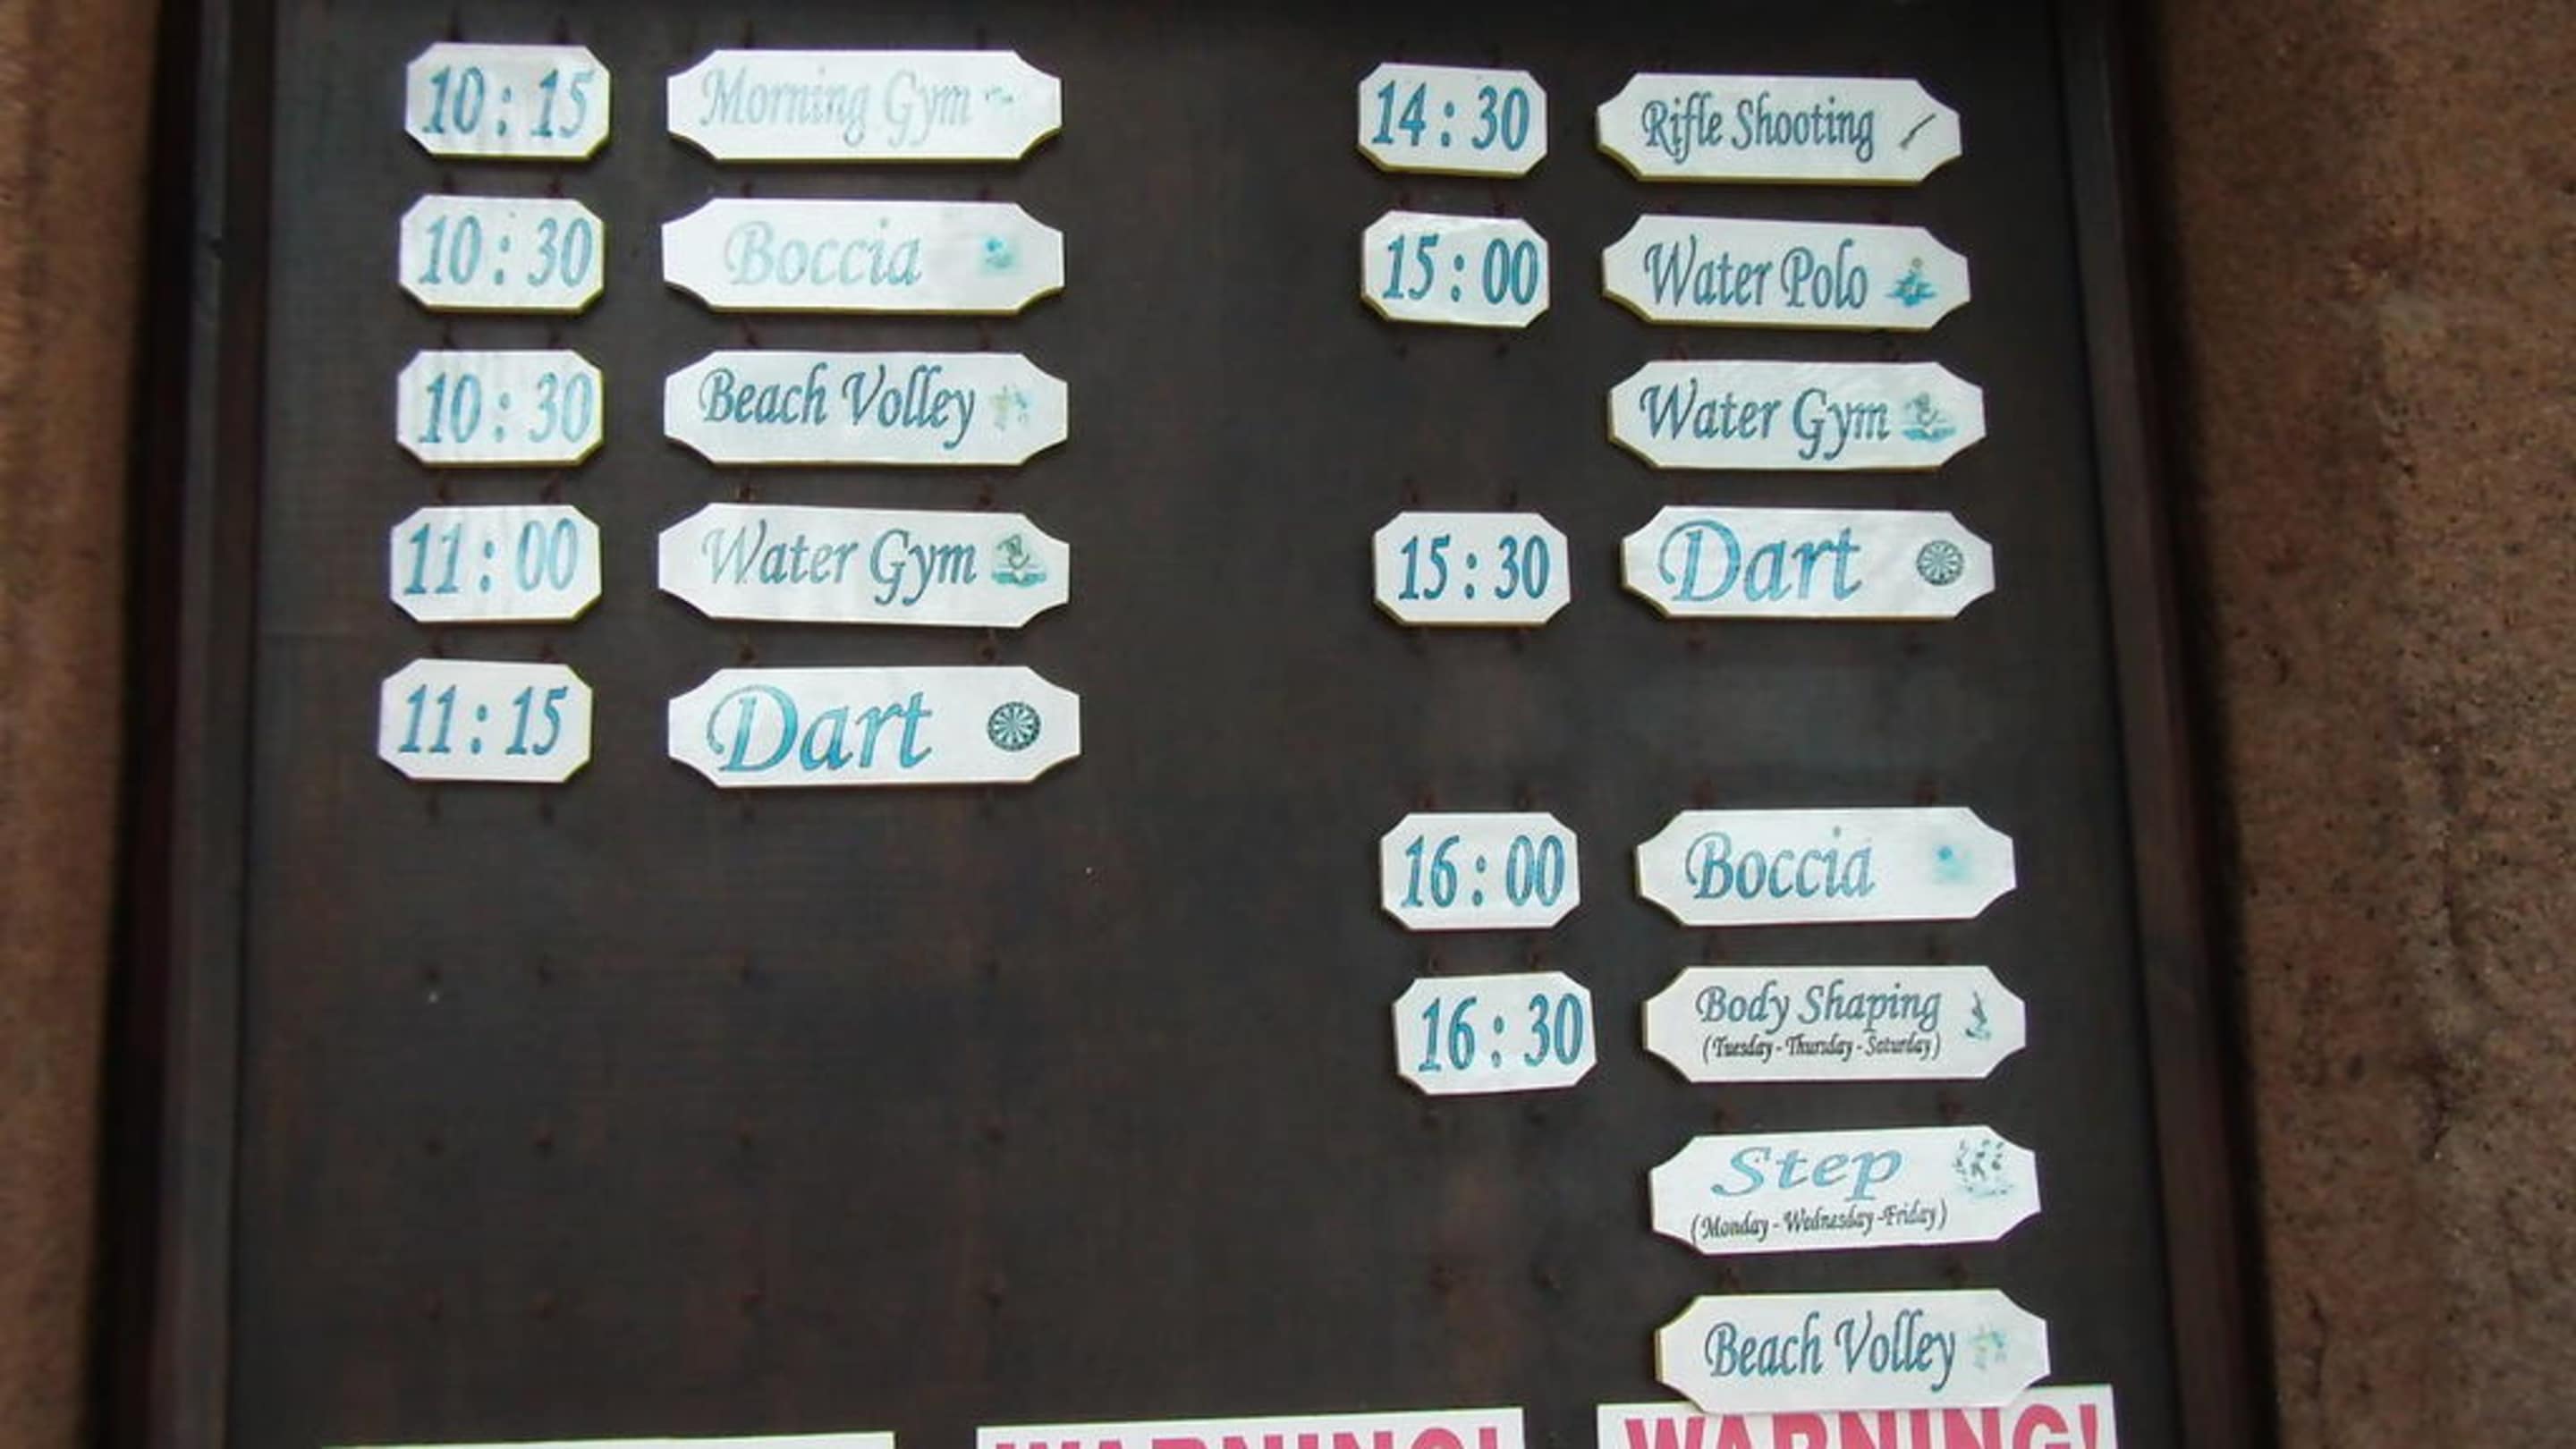 10:15 Morning Gym
10:30 Boccia
10:30 Beach Volley
11:00 Water Gym
11:15 Dart
14:30 Rifle Shooting
15:00 Water Polo
Water Gym
15:30 Dart
16:00 Boccia
16:30 Body Shaping
(Tuesday - Thursday - Saturday)
Step
(Monday - Wednesday - Friday)
Beach Volley
WARNING!
WARNING!